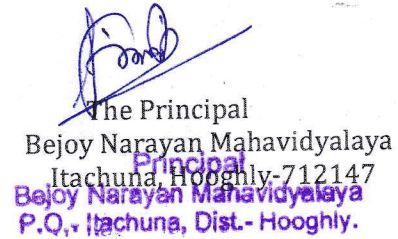 The Principal
Bejoy Narayan Mahavidyalaya
Itachuna, Hooghly-712147
Principal
Bejoy Narayan Mahavidyalaya
P.O,- Itachuna, Dist.- Hooghly.